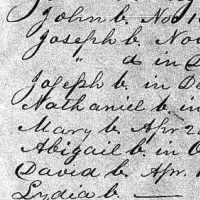 John b. Nov 1
Joseph b. Nov
" d in D
Joseph b. in De
Nathaniel b. in
Mary b. Apr 2
Abigail b. in O
David b. Apr. 1
Lydia b. —